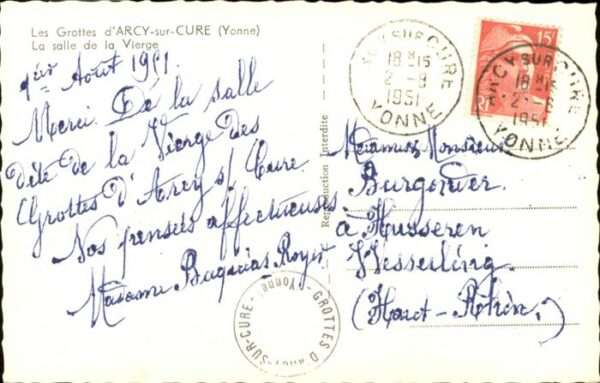 Les Grottes d'ARCY-sur-CURE (Yonne)
La salle de la Vierge
1er Août 1951
Merci. De la salle
dite de la Vierge des
Grottes d'Arcy s/ Cure.
Nos pensées affectueuses
Madame Royer
GROTTES D'ARCY-SUR-CURE - Yonne -
Reproduction Interdite
ARCY SUR CURE
18 H 15
2 - 8
1951
YONNE
15F
RF
ARCY SUR CURE
18 H 15
2 - 8
1951
YONNE
Monsieur
à Husseren
Wesserling
(Haut-Rhin.)